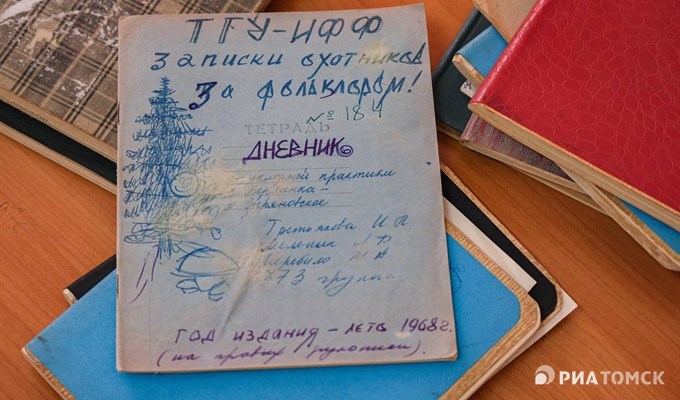 ТГУ-ИФФ
Записки охотников
За фольклором!
№ 184
ТЕТРАДЬ
ДНЕВНИК
практики
Третьякова И П
Мельник
873 группа
год издания - лето 1968 г.
(на правах рукописи).
РИАТОМСК